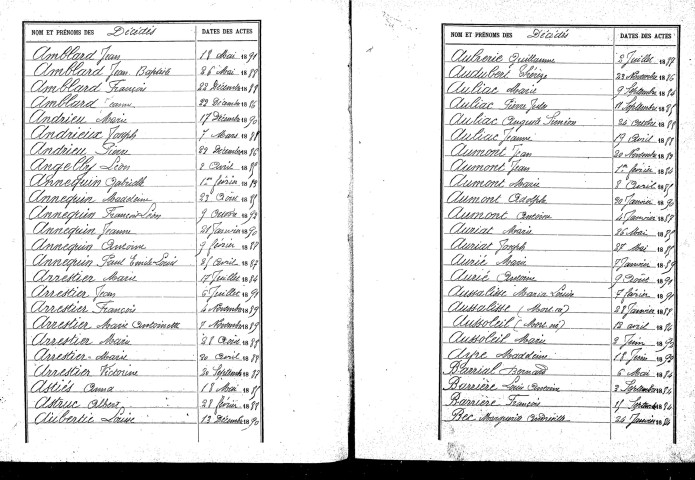 NOM ET PRÉNOMS DES Décédés DATES DES ACTES
Amblard Jean 18 Mai 1891
Amblard Jean Baptiste 26 Mai 188
Amblard François 22 Décembre 188
Amblard 22 Décembre 1886
Andrieu Marie 17 Décembre 1890
Andrieux Joseph 7 Mars 188
Andrieu Pierre 22 Décembre 1886
Angelby Léon Avril 188
Annequin Gabrielle 1er février 18
Annequin Madeleine 23 Août 188
Annequin François Léon 9 Octobre 18
Annequin Jeanne 21 Janvier 1890
Annequin Antoine 9 février 188
Annequin Paul Emile Louis Avril 1887
Arrestier Marie 17 Juillet 1884
Arrestier Jean 6 Juillet 1891
Arrestier François 4 Novembre 1889
Arrestier Marie Antoinette 7 Novembre 1889
Arrestier Marie 28 Août 188
Arrestier Marie 20 Avril 188
Arrestier Victorine 20 Septembre 188
Astiès Anna 18 Mai 188
Astruc Albert 21 février 188
Aubertie Louise 13 Décembre 1890
NOM ET PRÉNOMS DES Décédés DATES DES ACTES
Aubrerie Guillaume 2 Juillet 188
Audubert Thérèze 23 Novembre 1886
Auliac Marie 9 Septembre 1884
Auliac Pierre Jules 11 Septembre 188
Auliac Auguste 24 Octobre 188
Auliac Jeanne 19 Avril 188
Aumont Jean 20 Novembre 18
Aumont Jean 1er février 1884
Aumont Marie 8 Avril 188
Aumont Adolphe 20 Janvier 1890
Aumont Antoine 4 Janvier 188
Auriat Marie 26 Mai 188
Auriat Joseph 27 Mai 188
Aurié Marie 7 Janvier 1889
Aurié Antoine 9 Août 1891
Aussalisse Maria Louise 7 février 1891
Aussalisse (Mort né) 28 Janvier 188
Aussoleil (Mort né) 12 avril 1886
Aussoleil Marie 2 Juin 1890
Ayre Madeleine 18 Juin 1890
Barrial Bernard 6 Mai 1884
Barrière Louis Antoine 3 Septembre 1884
Barrière François 15 Septembre 1884
Bec Marguerite 24 Janvier 1884